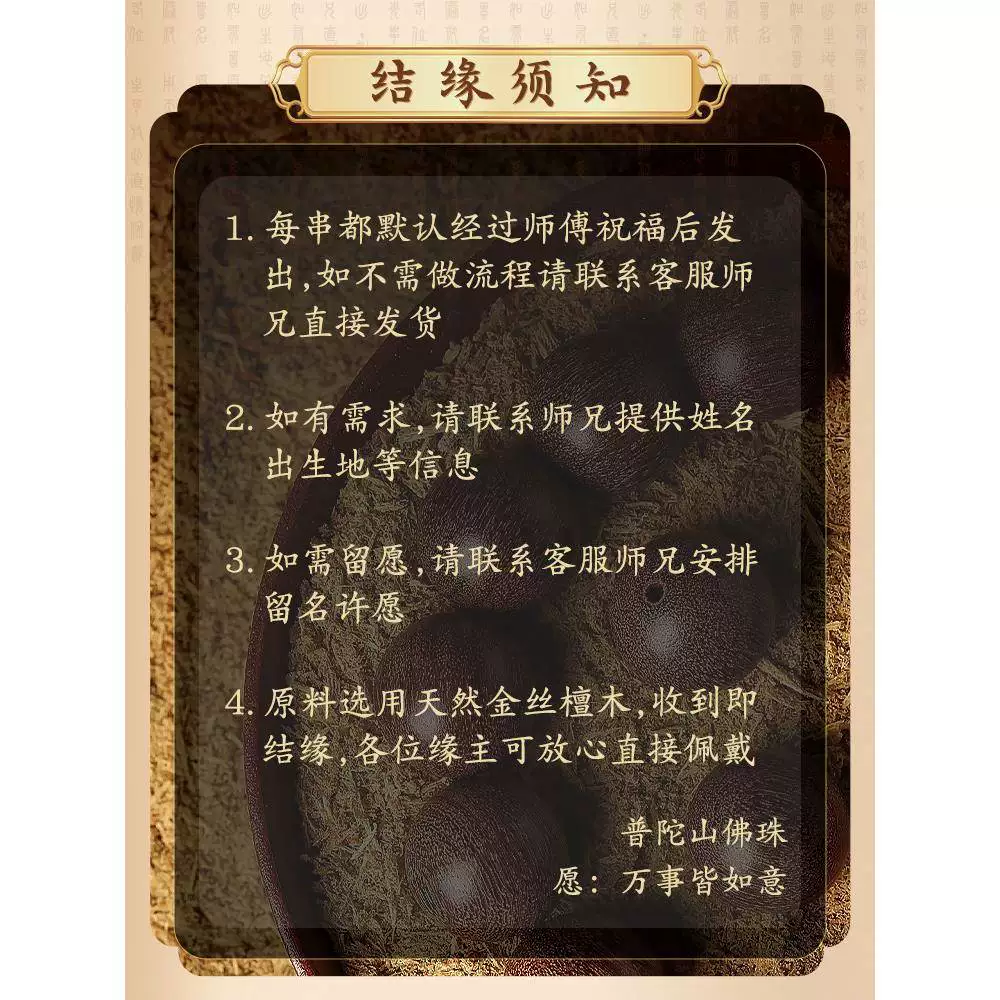 结缘须知
1. 每串都默认经过师傅祝福后发
出,如不需做流程请联系客服师
兄直接发货
2. 如有需求,请联系师兄提供姓名
出生地等信息
3. 如需留愿,请联系客服师兄安排
留名许愿
4. 原料选用天然金丝檀木,收到即
结缘,各位缘主可放心直接佩戴
普陀山佛珠
愿：万事皆如意